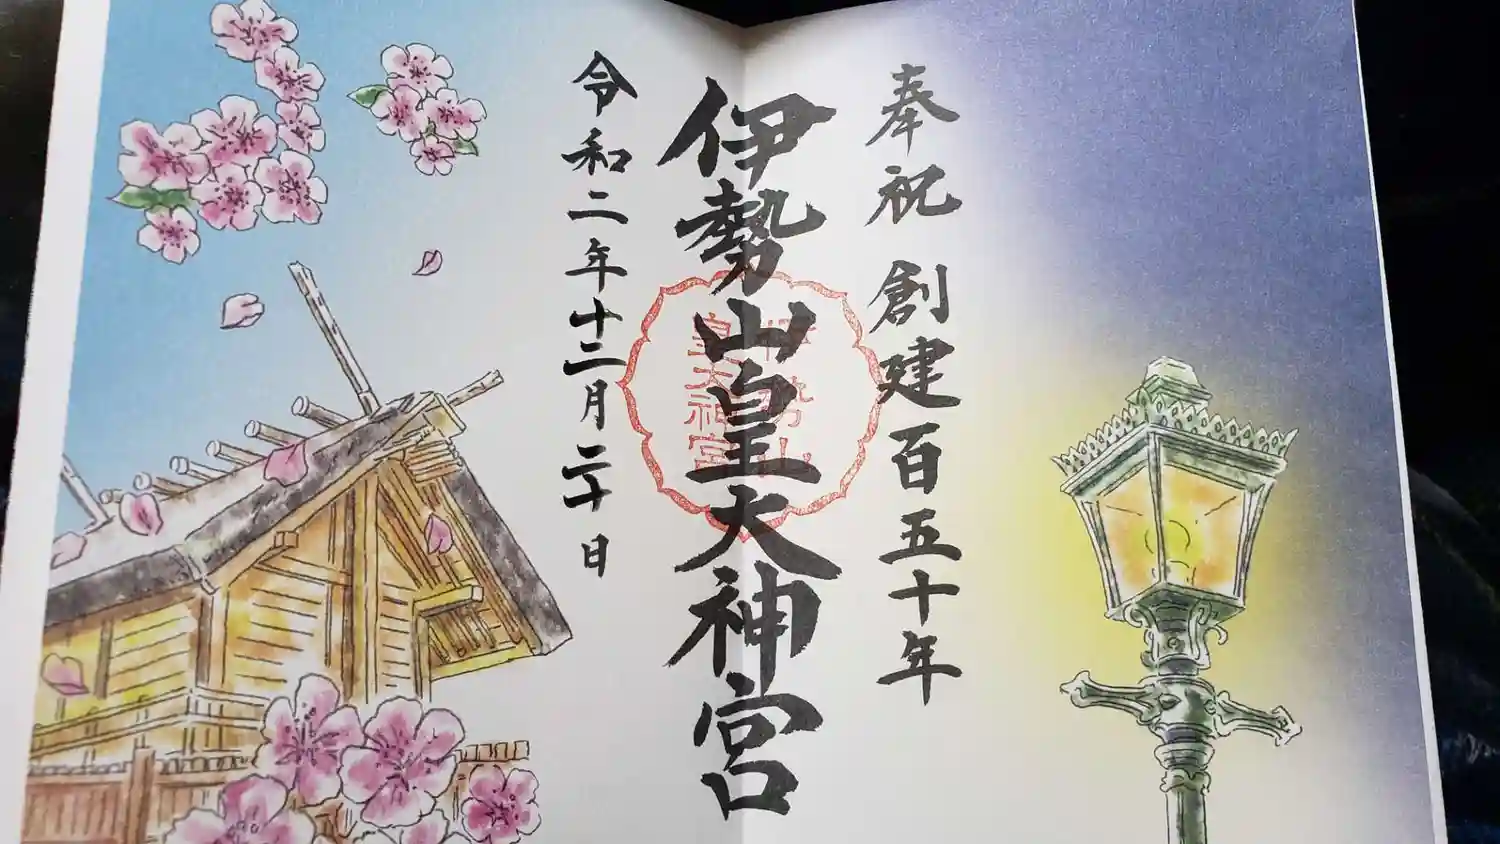 奉祝 創建百五十年
伊勢山皇大神宮
伊勢山
皇大神宮
令和二年十二月二十日